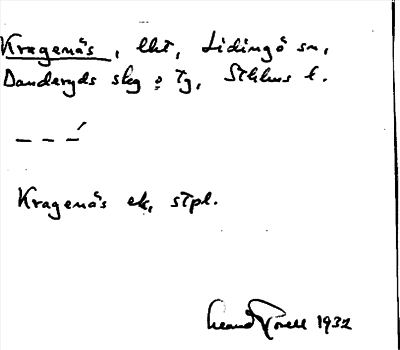 Kragenäs, lht, Lidingö sn,
Danderyds skg o Tg, Sthlms l.
– – –́
Kragenäs ek, stpl.
1932